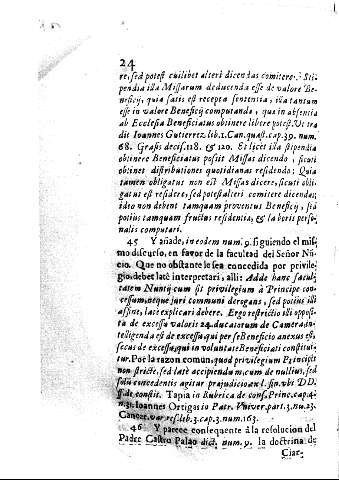 24
re, sed potest cuilibet alteri dicendas comitere. Sti-
pendia illa Missarum deducenda esse de valore Be-
neficij, quia satis est recepta sententia, illa tantum
esse in valore Beneficij computanda, qua in absentia
ab Ecclesia Beneficiatus obtinere libere potest. Ut tra
dit Ioannes Gutierrez lib. 1. Can. quæst. cap. 39. num.
68. Grasis decis. 118. & 120. Et licet illa stipendia
obtinere Beneficiatus possit Missas dicendo, sicuti
obtinet distributiones quotidianas residendo: Quia
tamen obligatus non est Missas dicere, sicuti obli-
gatus est residere, sed potest alteri comitere dicendas;
ideo non debent tamquam proventus Beneficij, sed
potius tamquam fructus residentia, & laboris perso-
nalis computari.
45 Y añade, in eodem num. 9. siguiendo el mis-
mo discurso, en favor de la facultad del Señor Nũ-
cio. Que no obstante le sea concedida por privile-
gio, debet late interpretari, alli: Adde hanc facul-
tatem Nuntij cum sit privilegium à Principe con-
cessum, neque juri communi derogans, sed potius illi
affine, late explicari debere. Ergo restrictio illi oppo-
ta de excessu valoris 24. ducatorum de Camera in-
telligenda est de excessu qui per se Beneficio anexus est,
secus de excessu, qui in voluntate Beneficiati constitui-
tur. Por la razon comun, quod privilegium Principis
non stricte, sed late accipiendum, cum de nullius, sed
solũ concedentis agitur prajudicio ex l. fin. vbi DD.
ff. de constit. Tapia in Rubrica de cons. Princ. cap. 4
n. 31. Ioannes Ortigas io Patr. Vniver. part. 3. nu. 23.
Cancer. var. res. lib. 3. cap. 3. num. 163.
46 Y parece consequente à la resolucion del
Padre Castro Palao dict. num. 9. la doctrina de
Ciar-